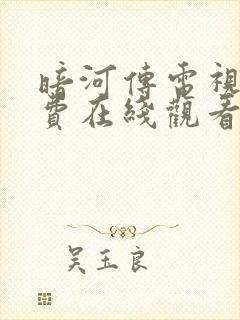 暗河傳電視
費在綫觀看
吴玉良